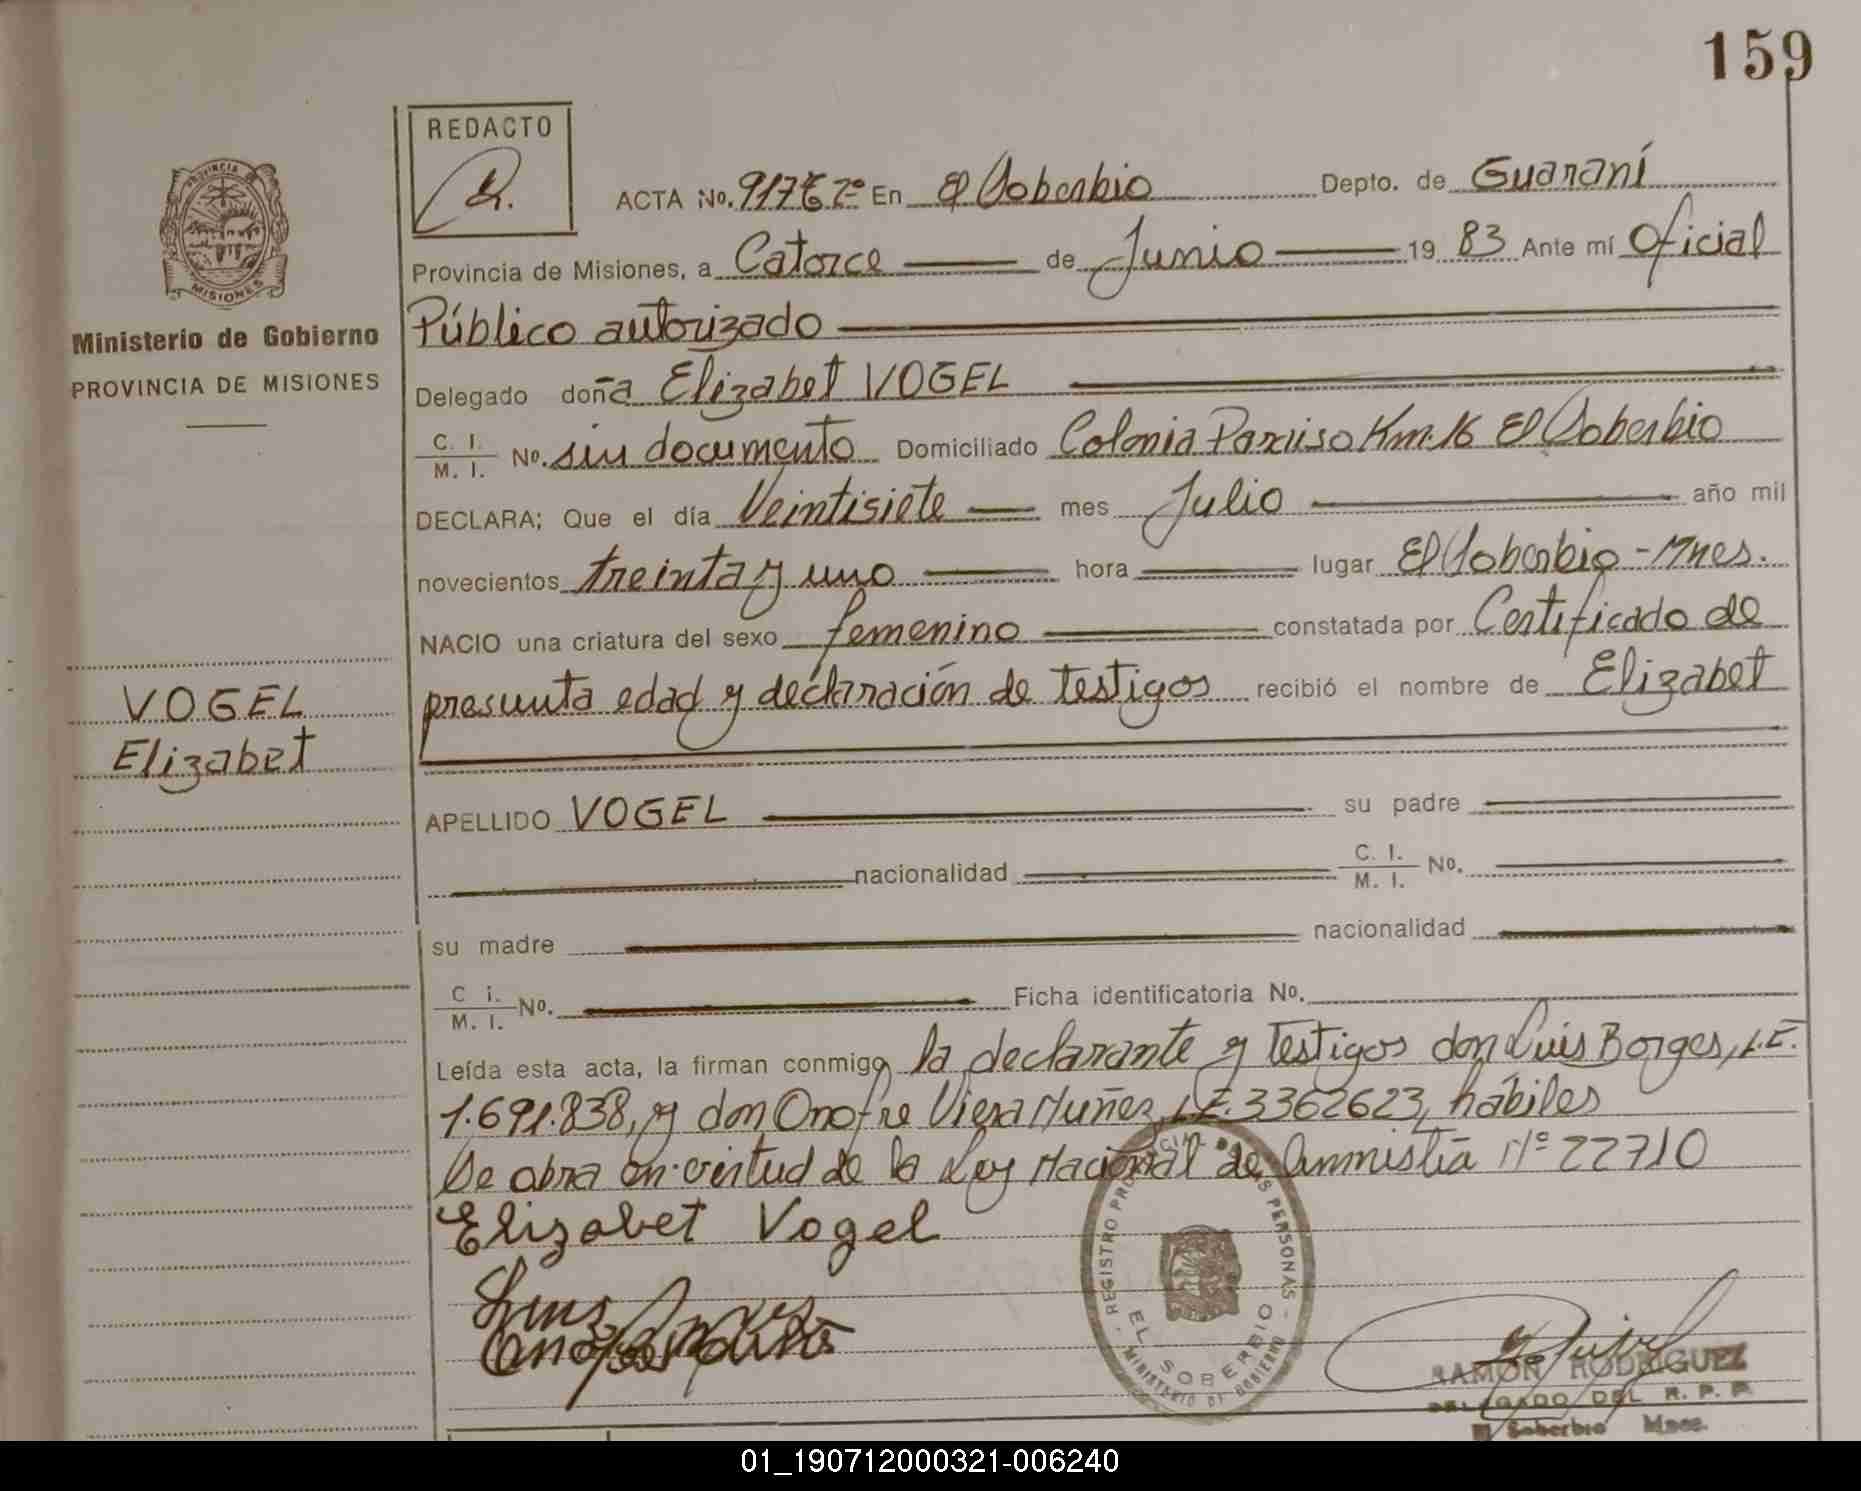 159
REDACTO
PROVINCIA
MISIONES
Ministerio de Gobierno
PROVINCIA DE MISIONES
ACTA No. 917 En El Soberbio Depto. de Guaraní
Provincia de Misiones, a Catorce de Junio 19 83 Ante mí Oficial
Público autorizado
Delegado doña Elizabet VOGEL
C. I. / M. I. No. sin documento Domiciliado Colonia Paraiso Km.16 El Soberbio
DECLARA; Que el día Veintisiete mes Julio año mil
novecientos treinta y uno hora lugar El Soberbio - Mnes.
NACIO una criatura del sexo femenino constatada por Certificado de
presunta edad y declaración de testigos recibió el nombre de Elizabet
VOGEL
Elizabet
APELLIDO VOGEL su padre
nacionalidad C. I. / M. I. No.
su madre nacionalidad
C i. / M. I. No. Ficha identificatoria No.
Leída esta acta, la firman conmigo la declarante y testigos don Luis Borges, L.E.
1.691.838, y don Onofre Viera Nuñez, L.E. 3362623, hábiles
Se obra en virtud de la Ley Nacional de Anmistía Nº 22710
Elizabet Vogel
Luis
REGISTRO PROVINCIAL DE LAS PERSONAS
EL SOBERBIO
MINISTERIO DE GOBIERNO
RAMON RODRIGUEZ
DELEGADO DEL R. P. P.
El Soberbio Mnes.
01_190712000321-006240